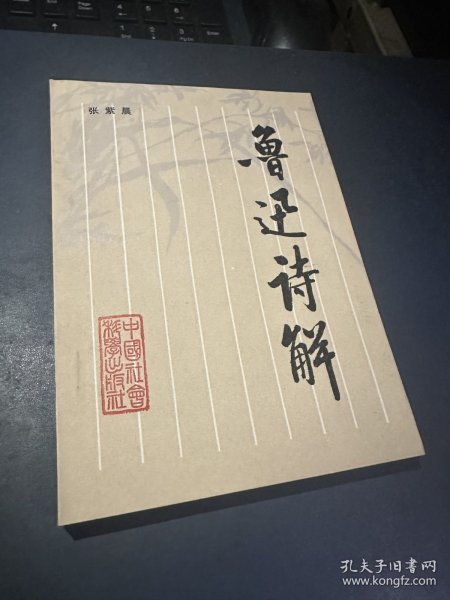 张紫晨
鲁迅诗解
中國社會
科學出版社
孔夫子旧书网
www.kongfz.com